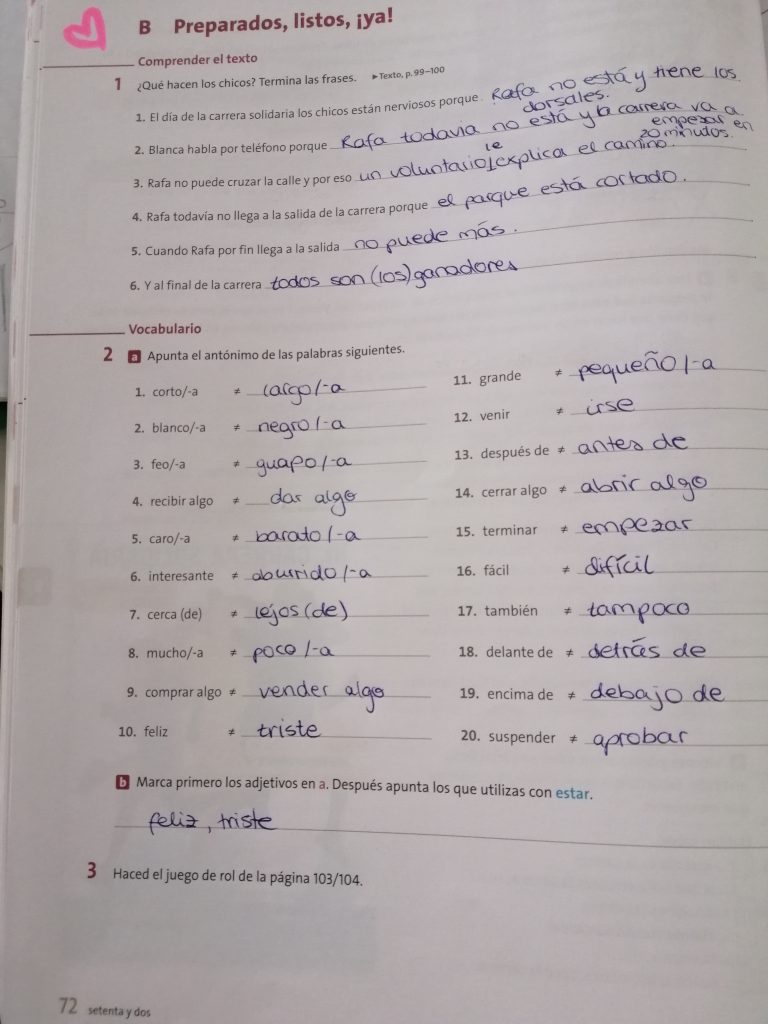 B Preparados, listos, ¡ya!
Comprender el texto
1 ¿Qué hacen los chicos? Termina las frases. ▸Texto, p. 99–100
1. El día de la carrera solidaria los chicos están nerviosos porque Rafa no está y tiene los
dorsales.
2. Blanca habla por teléfono porque Rafa todavia no está y la carrera va a
empezar en
20 minutos.
3. Rafa no puede cruzar la calle y por eso un voluntario le explica el camino.
4. Rafa todavía no llega a la salida de la carrera porque el parque está cortado.
5. Cuando Rafa por fin llega a la salida no puede más.
6. Y al final de la carrera todos son (los) ganadores
Vocabulario
2 a Apunta el antónimo de las palabras siguientes.
1. corto/-a ≠ largo/-a
2. blanco/-a ≠ negro/-a
3. feo/-a ≠ guapo/-a
4. recibir algo ≠ dar algo
5. caro/-a ≠ barato/-a
6. interesante ≠ aburrido/-a
7. cerca (de) ≠ lejos (de)
8. mucho/-a ≠ poco/-a
9. comprar algo ≠ vender algo
10. feliz ≠ triste
11. grande ≠ pequeño/-a
12. venir ≠ irse
13. después de ≠ antes de
14. cerrar algo ≠ abrir algo
15. terminar ≠ empezar
16. fácil ≠ difícil
17. también ≠ tampoco
18. delante de ≠ detrás de
19. encima de ≠ debajo de
20. suspender ≠ aprobar
b Marca primero los adjetivos en a. Después apunta los que utilizas con estar.
feliz, triste
3 Haced el juego de rol de la página 103/104.
72 setenta y dos